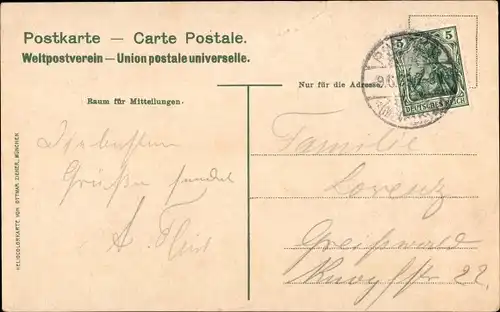 Postkarte — Carte Postale.
Weltpostverein — Union postale universelle.
Nur für die Adresse
Raum für Mitteilungen.
5 5
DEUTSCHES REICH
HELIOCOLORKARTE VON OTTMAR ZIEHER, MÜNCHEN
Grüße sendet
A.
Familie
Lorenz
Greifswald
22.